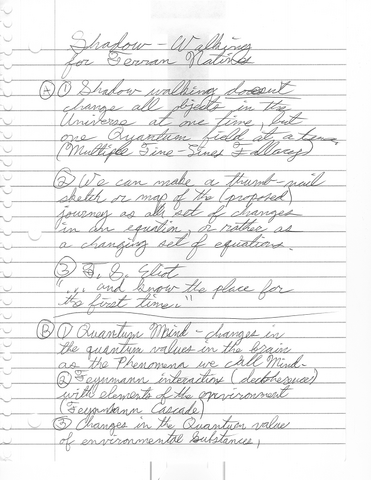 Shadow-Walking
for Terran Natives
(A) (1) Shadow walking doesn't
change all objects in the
Universe at one time, but
one Quantum field at a time.
(Multiple Time-Lines Fallacy)
(2) We can make a thumb-nail
sketch or map of the (proposed)
journey as a set of changes
in an equation, or rather as
a changing set of equations.
(3) T. S. Eliot
"... and know the place for
the first time."
(B) (1) Quantum Mind - changes in
the quantum values in the brain
as the Phenomena we call Mind.
(2) Feynmann interactions
with elements of the environment
(Feynmann Cascade)
(3) Changes in the Quantum value
of environmental substance,